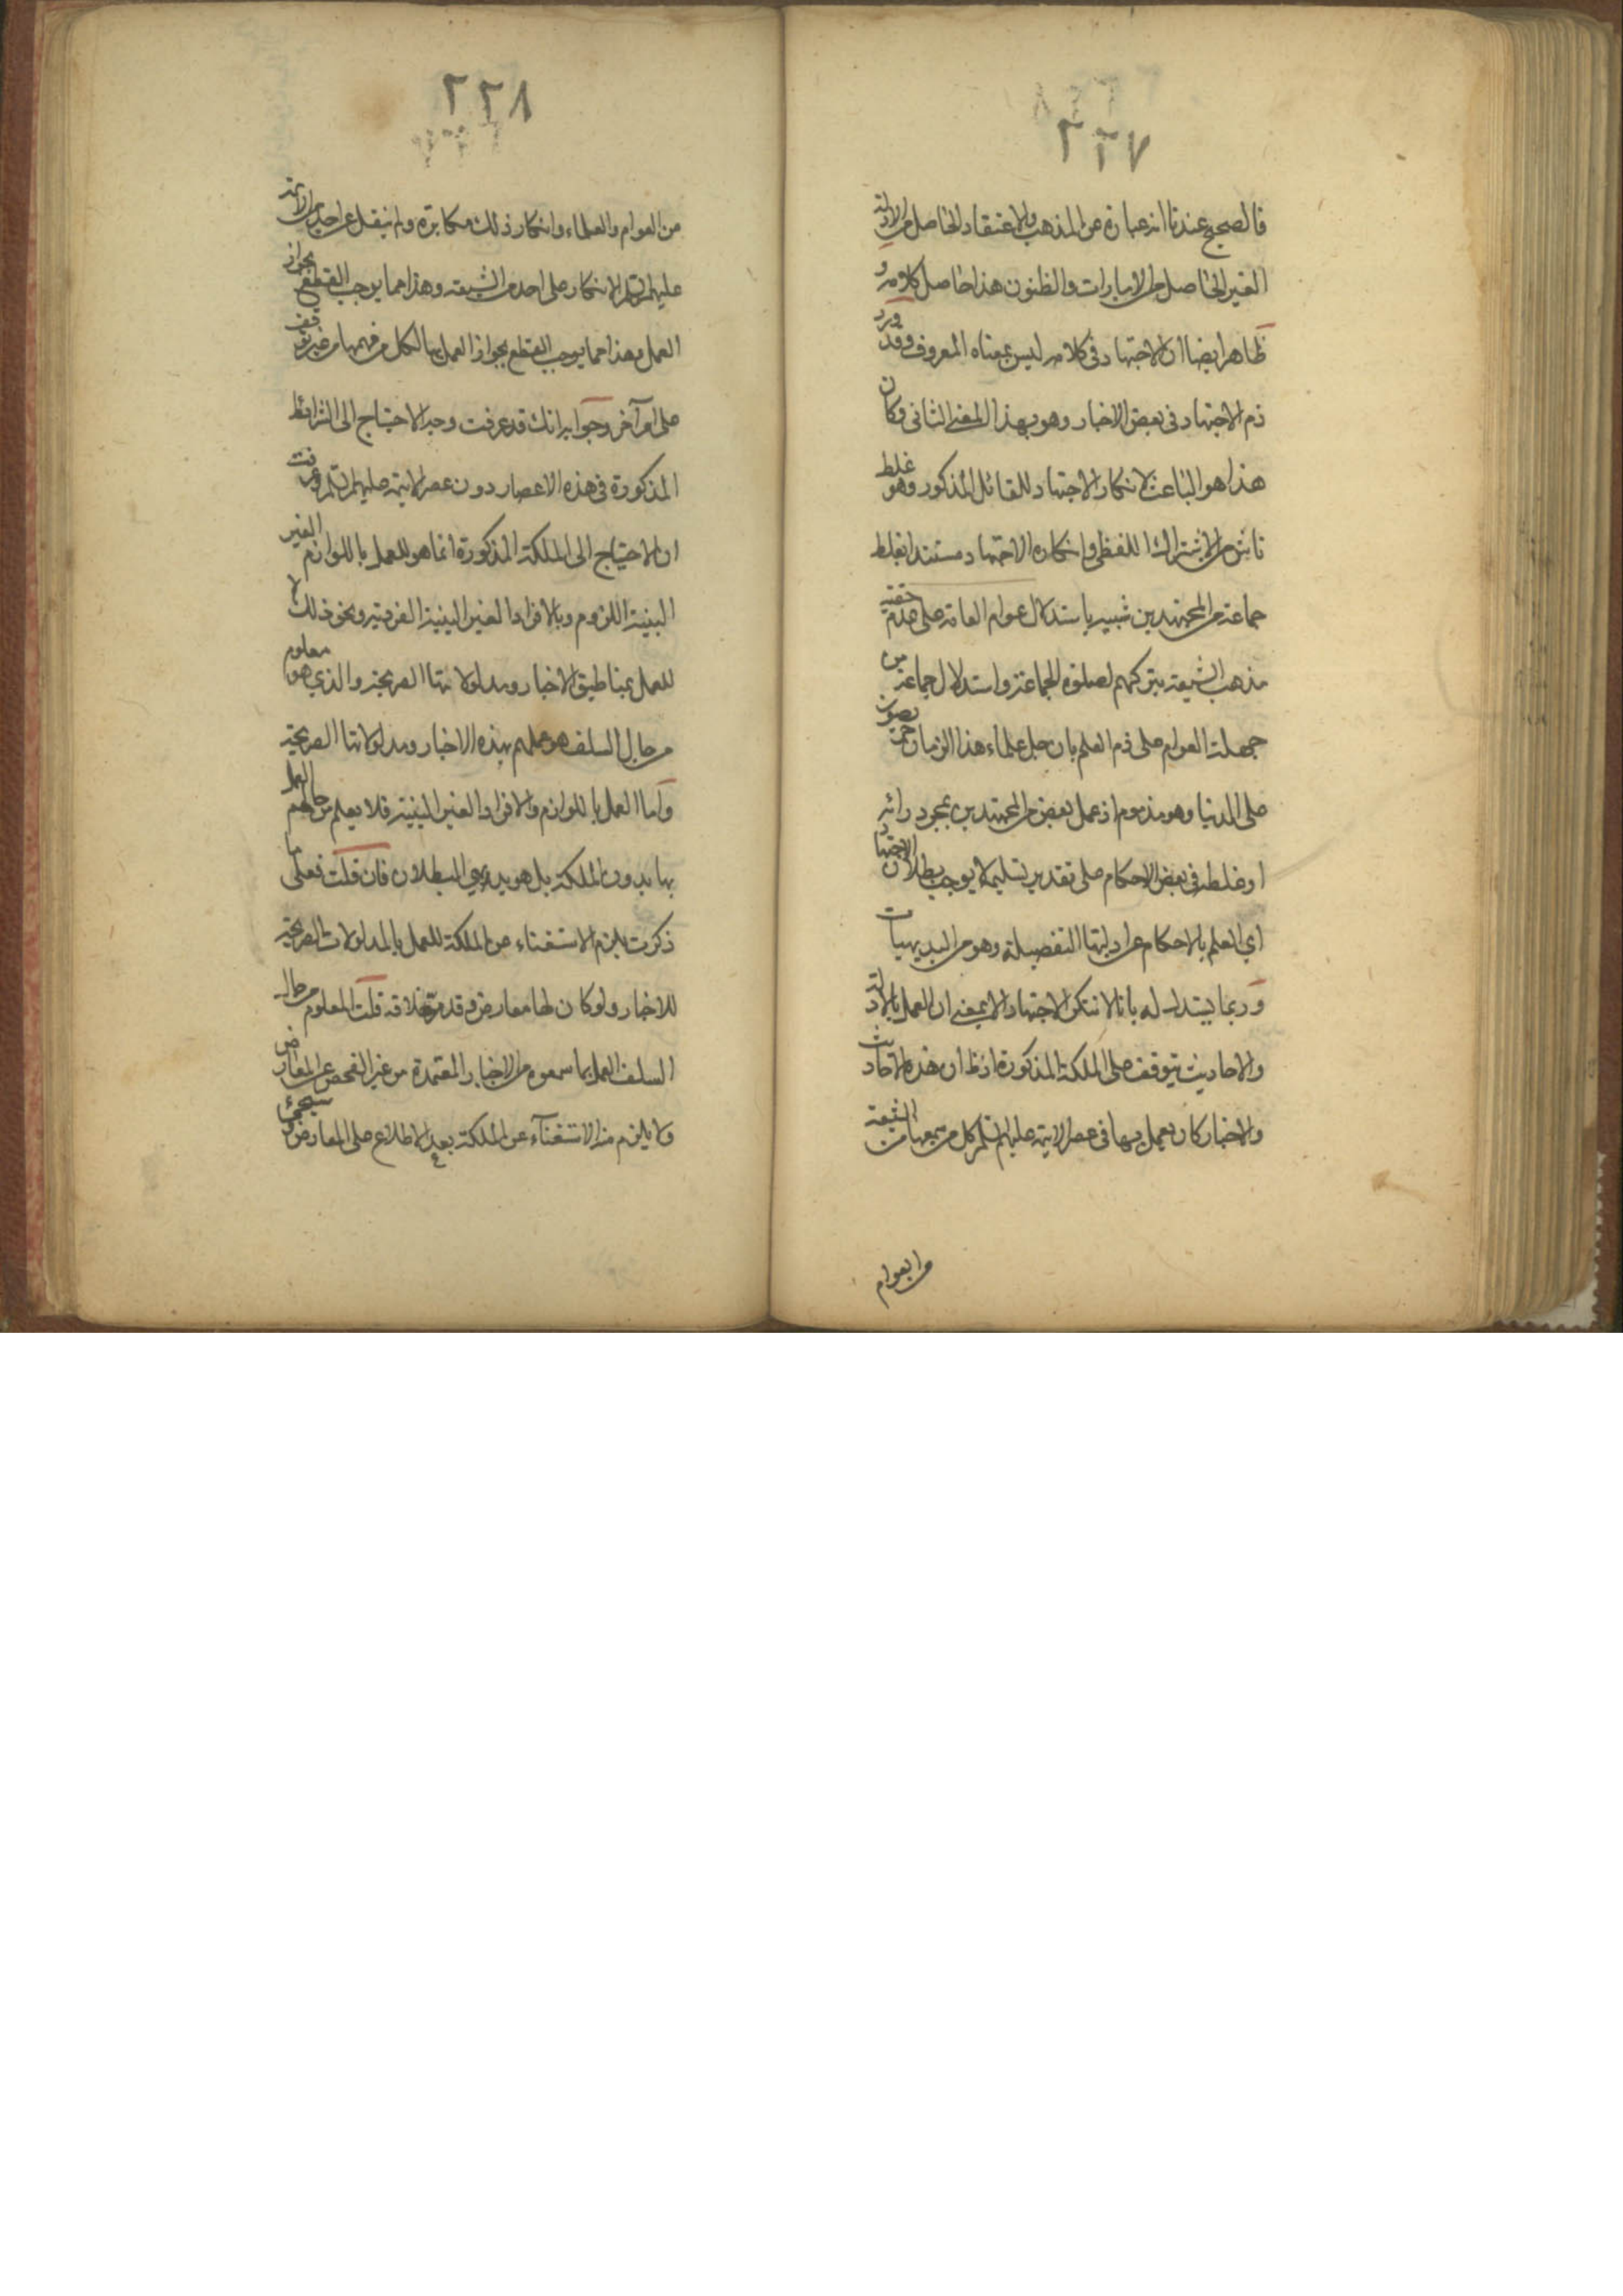 ٢٢٧
فالصحيح عندنا انه عبارة عن المذهب والاعتقاد الحاصل من الادلة
الغير الحاصل من الامارات والظنون هذا حاصل كلامه و
ظاهر ايضا ان الاجتهاد في كلامه ليس بمعناه المعروف وقد ورد
ذم الاجتهاد في بعض الاخبار وهو بهذا المعنى الثاني وكان
هذا هو الباعث لانكار الاجتهاد للقائل المذكور وهو غلط
ناش من الاشتراك اللفظي وانكاره الاجتهاد مستندا بغلط
جماعة من المجتهدين شبيه باستدلال عوام العامة على عدم حقية
مذهب الشيعة بتركهم لصلوة الجماعة واستدلال جماعة من
جهلة العوام على ذم العلم بان جل علماء هذا الزمان حريصون
على الدنيا وهو مذموم اذ عمل بعض من المجتهدين بمجرد رائه
او غلطه في بعض الاحكام على تقدير تسليمه لا يوجب بطلان الاجتهاد
اي العلم بالاحكام عن ادلتها التفصيلة وهو من البديهيات
و ربما يستدل له بانا لا ننكر الاجتهاد الا بمعنى ان العمل بالادلة
والاحاديث يتوقف على الملكة المذكورة اذ ظ ان هذه الاحاديث
والاخبار كان يعمل بها في عصر الائمة عليهم السلم كل من سمعها من الشيعة
من العوام
٢٢٨
من العوام والعلماء وانكار ذلك مكابرة ولم ينقل عن احد من الائمة
عليهم السلم الانكار على احد من الشيعة وهذا مما يوجب القطع بجواز
العمل وهذا مما يوجب القطع بجواز العمل بها لكل من فهمها من غير توقف
على امر آخر وجوابه انك قد عرفت وجه الاحتياج الى الشرائط
المذكورة في هذه الاعصار دون عصر الائمة عليهم السلم وعرفت
ان الاحتياج الى الملكة المذكورة انما هو للعمل باللوازم الغير
البينة اللزوم وبالافراد الغير البينية الفردية ونحو ذلك لا
للعمل بمناطيق الاخبار ومدلولاتها الصريحة والذي هو معلوم
من حال السلف هو عملهم بهذه الاخبار ومدلولاتها الصريحة
واما العمل باللوازم والافراد الغير البينية فلا يعلم من حالهم العمل
بها بدون الملكة بل هو بديهي البطلان فان قلت فعلى ما
ذكرت يلزم الاستغناء عن الملكة للعمل بالمدلولات الصريحة
للاخبار ولو كان لها معارض وقد مر خلافه قلت المعلوم من حال
السلف العمل بما سمعوه من الاخبار المعتمدة من غير الفحص عن المعارض
ولا يلزم منه الاستغناء عن الملكة بعد الاطلاع على المعارض وسيجئ